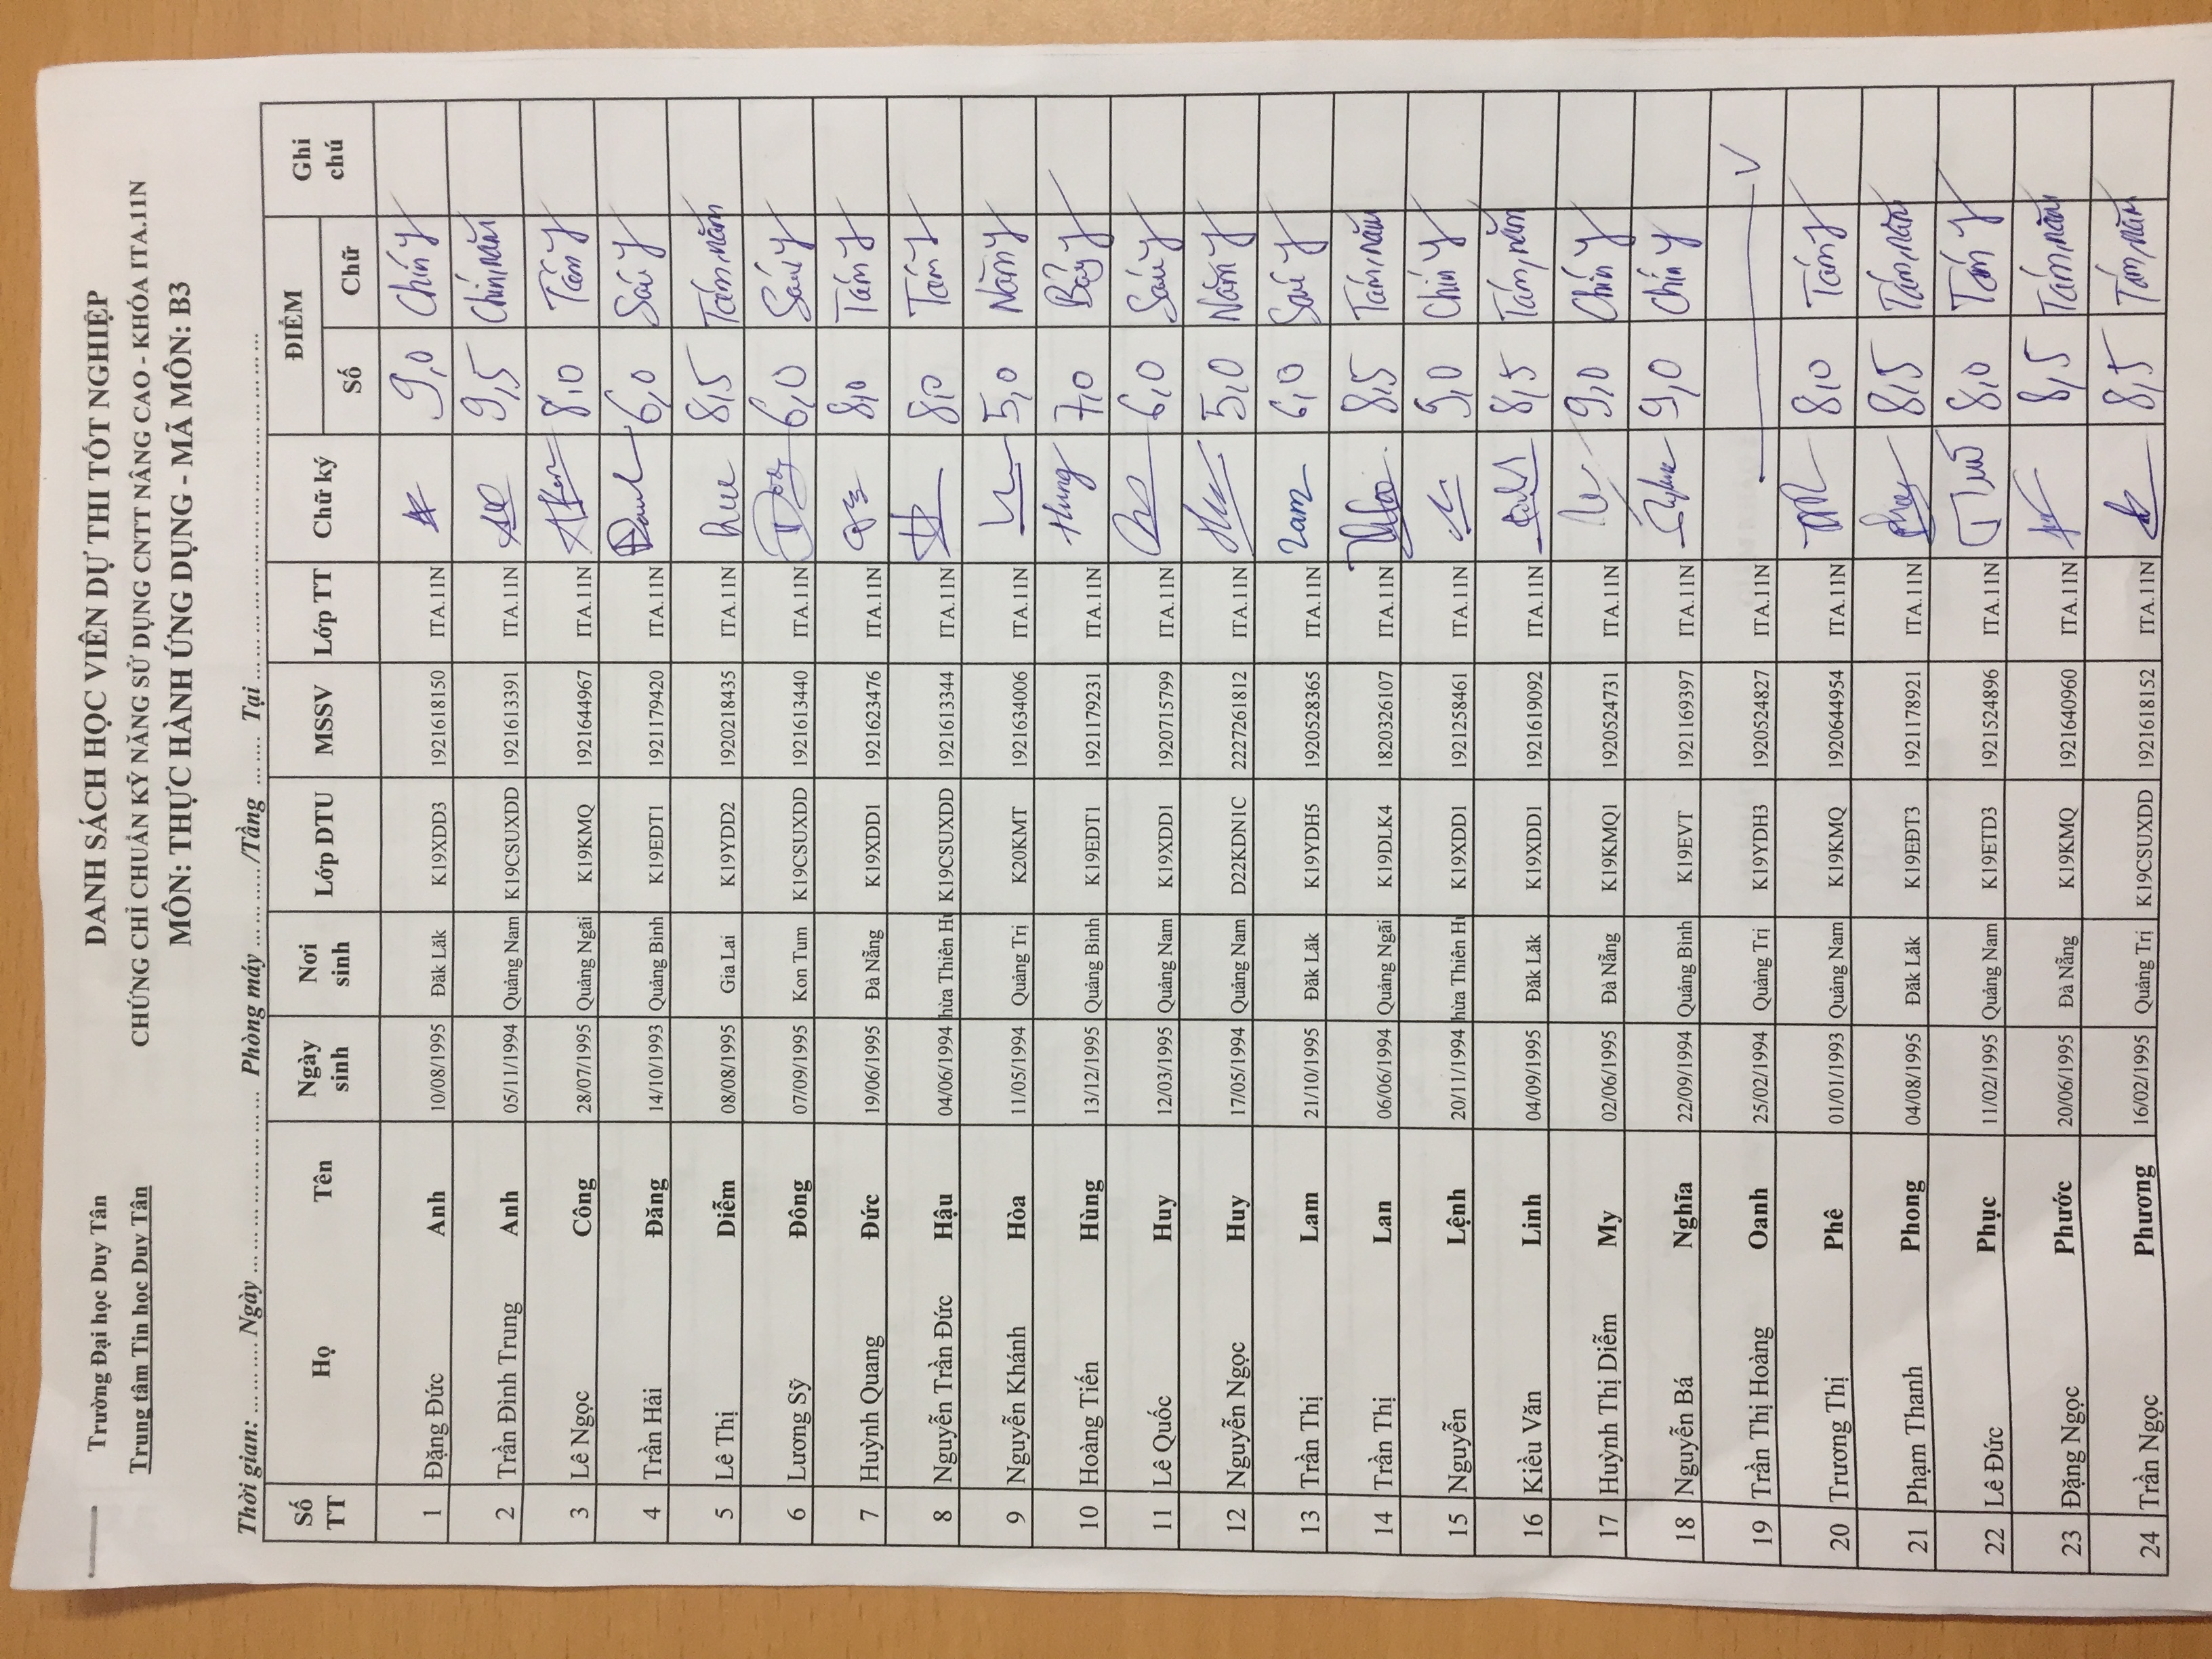 Trường Đại học Duy Tân
Trung tâm Tin học Duy Tân
DANH SÁCH HỌC VIÊN DỰ THI TỐT NGHIỆP
CHỨNG CHỈ CHUẨN KỸ NĂNG SỬ DỤNG CNTT NÂNG CAO - KHÓA ITA.11N
MÔN: THỰC HÀNH ỨNG DỤNG - MÃ MÔN: B3
Thời gian: ... ... .... Ngày ... ... ... ... ... ... ... Phòng máy ... ... ... ... /Tầng ... ... ... Tại ... ... ... ... ... ... ... ... ... ... ...
Số TT Họ Tên Ngày sinh Nơi sinh Lớp DTU MSSV Lớp TT Chữ ký ĐIỂM Ghi chú
Số Chữ
1 Đặng Đức Anh 10/08/1995 Đăk Lăk K19XDD3 1921618150 ITA.11N 9,0 Chín y
2 Trần Đình Trung Anh 05/11/1994 Quảng Nam K19CSUXDD 1921613391 ITA.11N 9,5 Chín, năm
3 Lê Ngọc Công 28/07/1995 Quảng Ngãi K19KMQ 1921644967 ITA.11N 8,0 Tám y
4 Trần Hải Đăng 14/10/1993 Quảng Bình K19EDT1 1921179420 ITA.11N 6,0 Sáu y
5 Lê Thị Diễm 08/08/1995 Gia Lai K19YDD2 1920218435 ITA.11N 8,5 Tám, năm
6 Lương Sỹ Đông 07/09/1995 Kon Tum K19CSUXDD 1921613440 ITA.11N 6,0 Sáu y
7 Huỳnh Quang Đức 19/06/1995 Đà Nẵng K19XDD1 1921623476 ITA.11N 8,0 Tám y
8 Nguyễn Trần Đức Hậu 04/06/1994 hừa Thiên Hu K19CSUXDD 1921613344 ITA.11N 8,0 Tám y
9 Nguyễn Khánh Hòa 11/05/1994 Quảng Trị K20KMT 1921634006 ITA.11N 5,0 Năm y
10 Hoàng Tiến Hùng 13/12/1995 Quảng Bình K19EDT1 1921179231 ITA.11N Hung 7,0 Bảy y
11 Lê Quốc Huy 12/03/1995 Quảng Nam K19XDD1 1920715799 ITA.11N 6,0 Sáu y
12 Nguyễn Ngọc Huy 17/05/1994 Quảng Nam D22KDN1C 2227261812 ITA.11N 5,0 Năm y
13 Trần Thị Lam 21/10/1995 Đăk Lăk K19YDH5 1920528365 ITA.11N Lam 6,0 Sáu y
14 Trần Thị Lan 06/06/1994 Quảng Ngãi K19DLK4 1820326107 ITA.11N 8,5 Tám, năm
15 Nguyễn Lệnh 20/11/1994 hừa Thiên Hu K19XDD1 1921258461 ITA.11N 9,0 Chín y
16 Kiều Văn Linh 04/09/1995 Đăk Lăk K19XDD1 1921619092 ITA.11N 8,5 Tám, năm
17 Huỳnh Thị Diễm My 02/06/1995 Đà Nẵng K19KMQ1 1920524731 ITA.11N 9,0 Chín y
18 Nguyễn Bá Nghĩa 22/09/1994 Quảng Bình K19EVT 1921169397 ITA.11N 9,0 Chín y
19 Trần Thị Hoàng Oanh 25/02/1994 Quảng Trị K19YDH3 1920524827 ITA.11N V
20 Trương Thị Phê 01/01/1993 Quảng Nam K19KMQ 1920644954 ITA.11N 8,0 Tám y
21 Phạm Thanh Phong 04/08/1995 Đăk Lăk K19EĐT3 1921178921 ITA.11N 8,5 Tám, năm
22 Lê Đức Phục 11/02/1995 Quảng Nam K19ETD3 1921524896 ITA.11N 8,0 Tám y
23 Đặng Ngọc Phước 20/06/1995 Đà Nẵng K19KMQ 1921640960 ITA.11N 8,5 Tám, năm
24 Trần Ngọc Phương 16/02/1995 Quảng Trị K19CSUXDD 1921618152 ITA.11N 8,5 Tám, năm